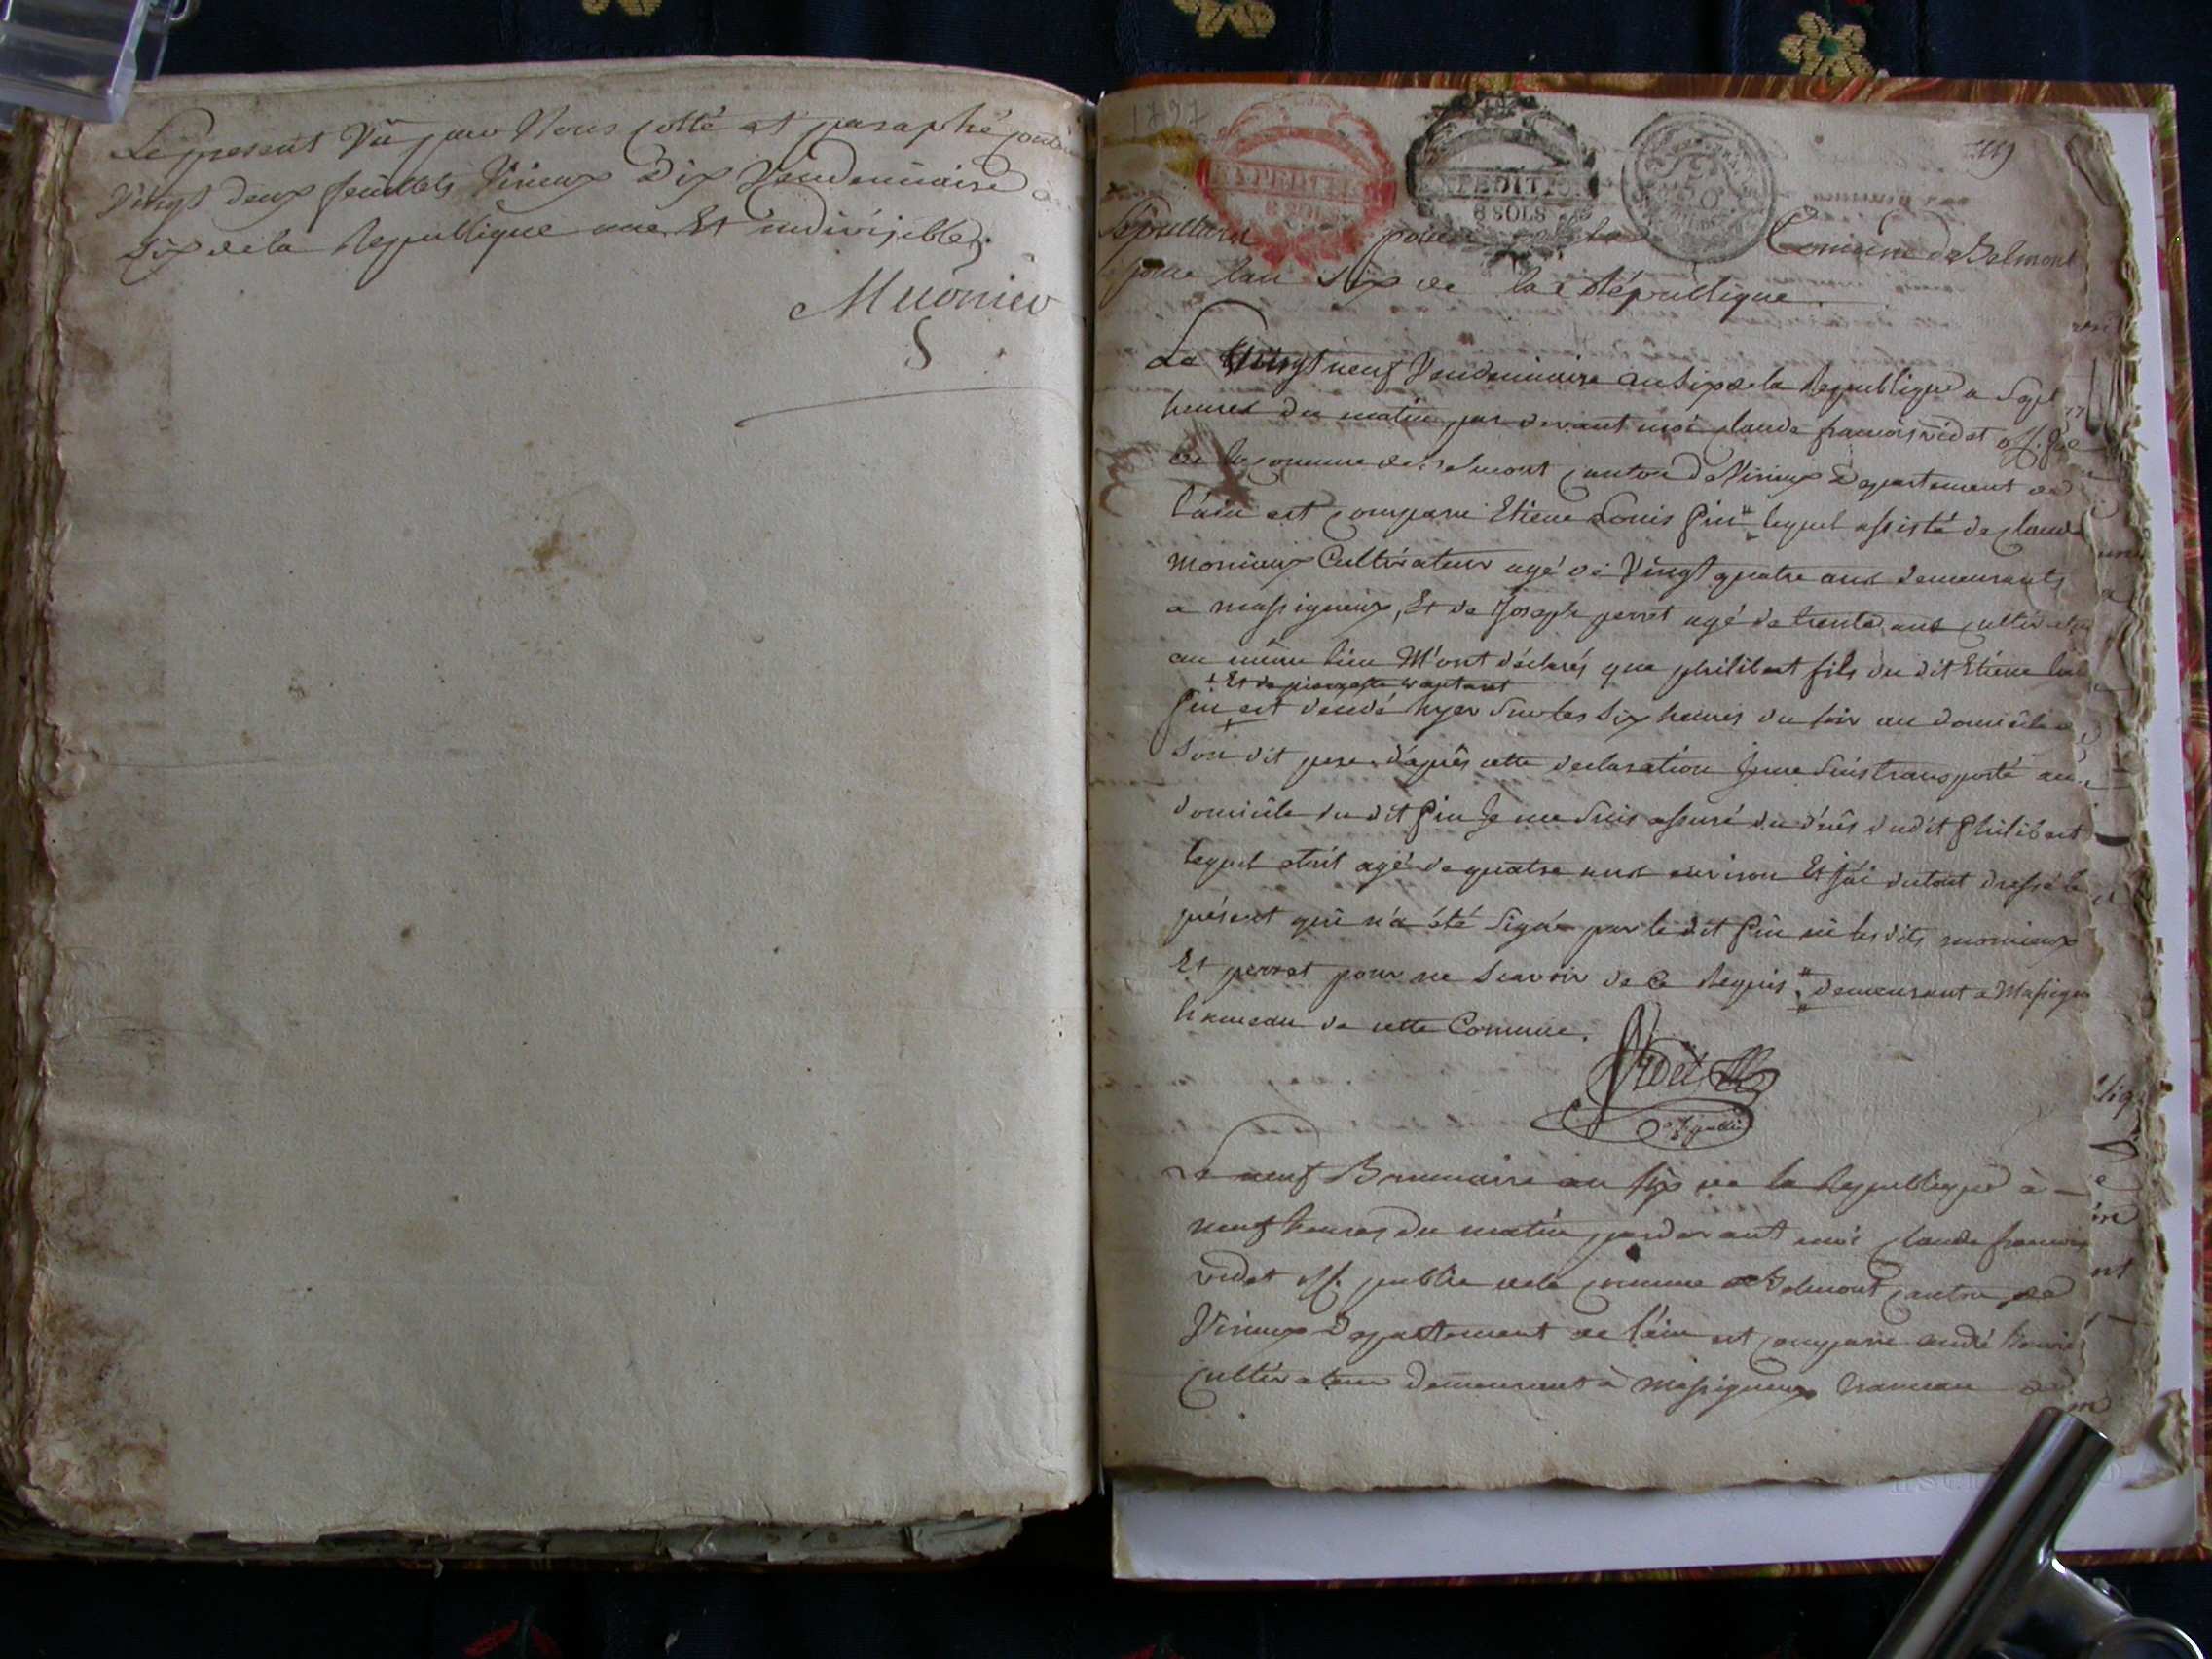 Le present Vû par Nous cotté et paraphé
Vingt deux feuillets Virieux Dix Vendemiaire
Six de la Republique une Et indivisible.
Meûnier
1797
EXPEDITION
8 SOLS
EXPEDITION
8 SOLS
Sépulture pour la Comune de Belmont
pour lan Six de la République.
Le Vingt neuf Vendemiaire an Six de la Republique a Sept
heures du matin, par devant moi claude francois videt off. 
de la comune de Belmont canton de Virieux Departement de
l'ain est comparu Etiene Louis Pin lequel assisté de claude
monieux Cultivateur agé de Vingt quatre ans demeurants
a massigneux, Et de Joseph perret agé de trente ans
au même lieu M'ont déclarés que philibert fils du dit Etiene
+ Et de
Pin est décédé hyer Sur les Six heures du soir au domicile
Son dit pere. d'après cette declaration Je me suis transporté au
domicile du dit Pin Je me suis assuré du décès dudit Philibert
lequel etoit agé de quatre ans environ Et j'ai du tout dressé le
présent qui n'a été Signé par le dit Pin ni les dits monieux
Et perret pour ne Scavoir de Ce Requis. demeurant a
hameau de cette Comune.
Videt
Le neuf Brumaire an Six de la Republique à
neuf heures du matin, par devant moi claude francois
videt off. public de la comune de Belmont canton de
Virieux Departement de l'ain est comparu andé
Cultivateur demeurant à massigneux hameau